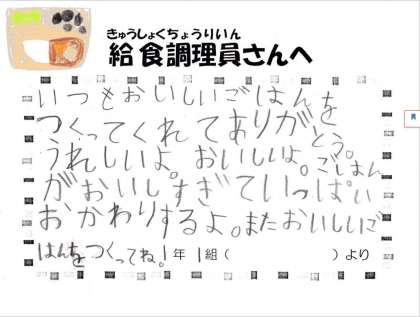 きゅうしょくちょうりいん
給食調理員さんへ
いつもおいしいごはんを
つくってくれてありがとう。
うれしいよ。おいしいよ。ごはん
がおいしすぎていっぱい
おかわりするよ。またおいしいご
はんをつくってね。1年1組（　　　）より